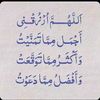 اللَّهُمَّ ارْزُقْنِي
أَجْمَلَ مِمَّا تَمَنَّيْتُ
وَأَكْثَرَ مِمَّا تَوَقَّعْتُ
وَأَفْضَلَ مِمَّا دَعَوْتُ